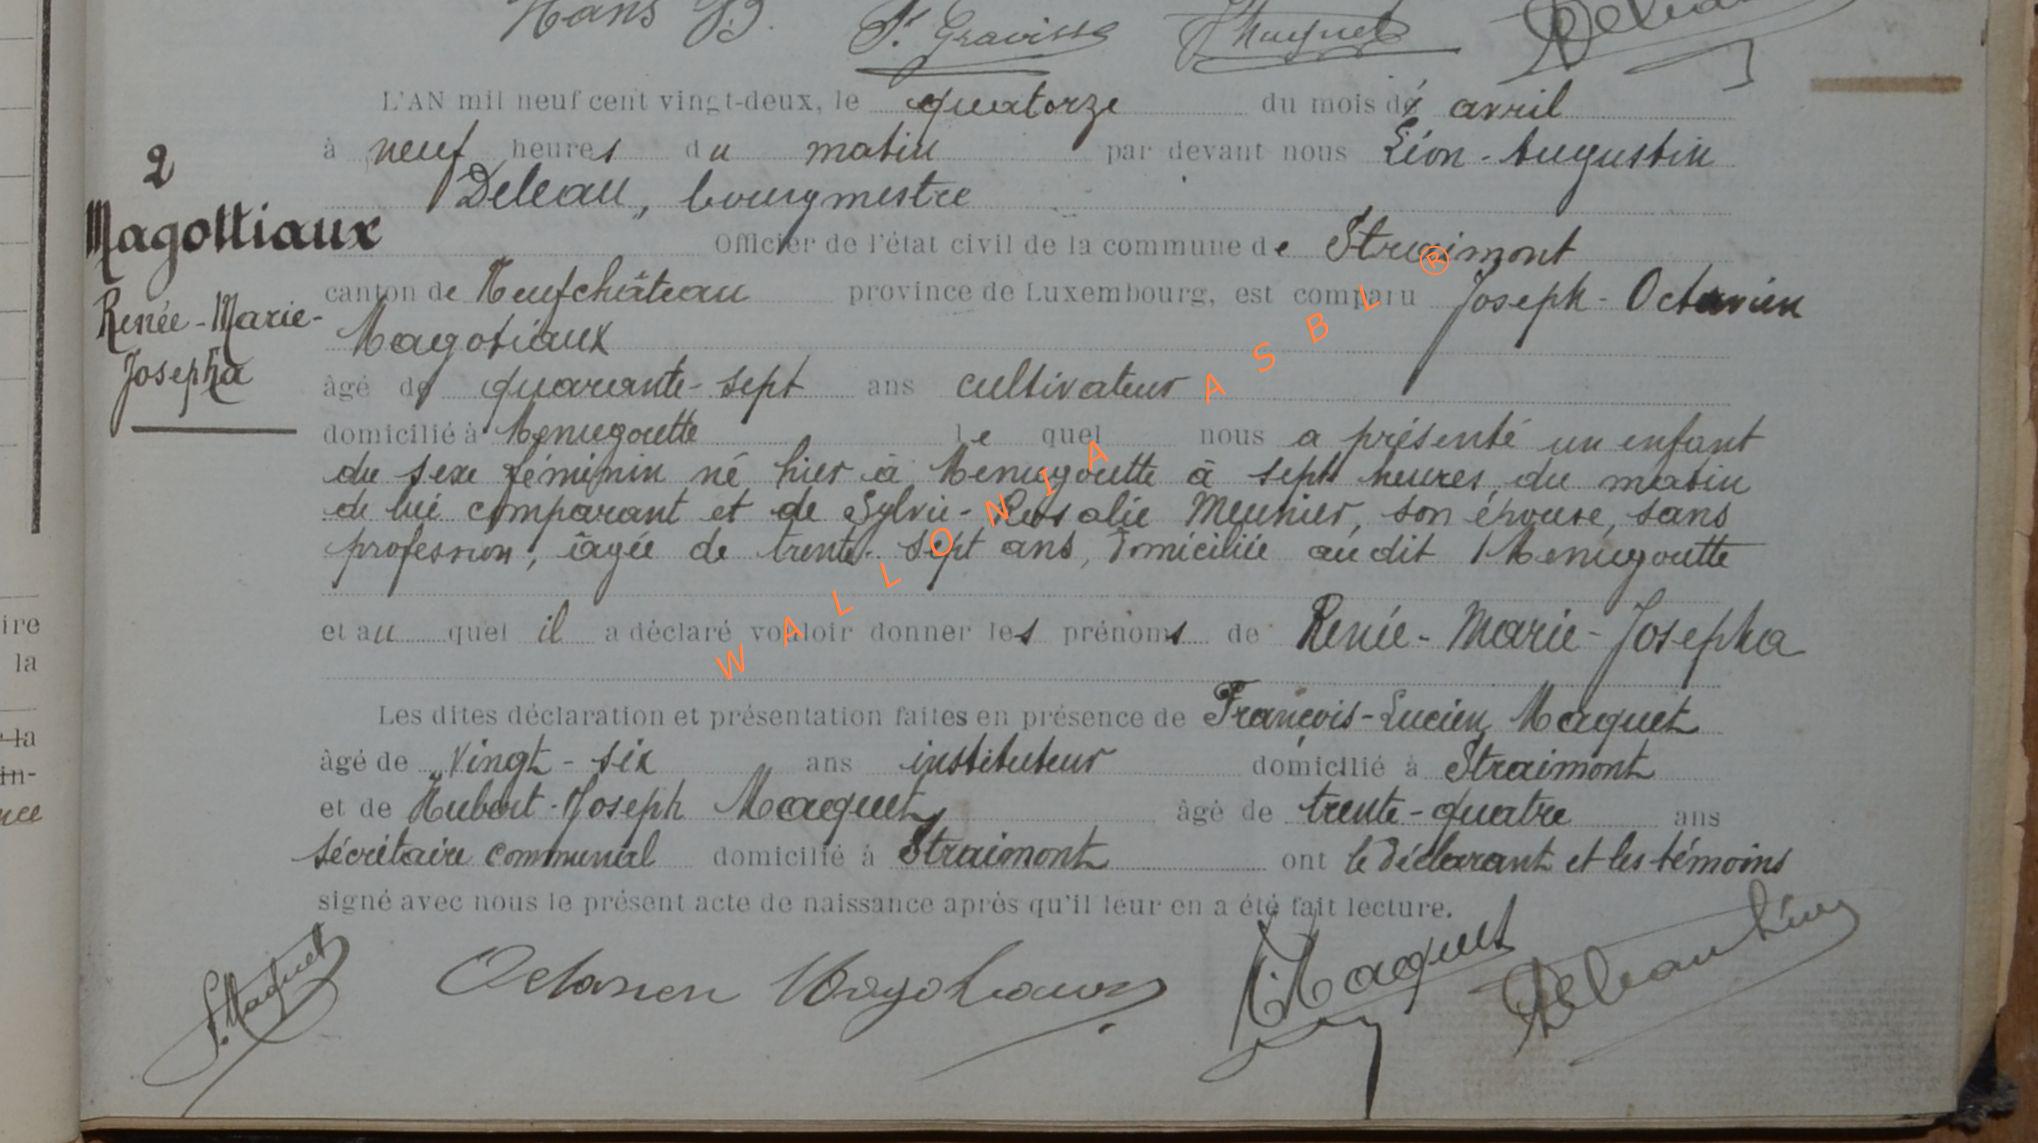 Hans J.B. F. Gravisse HMaquet Deleau
L'AN mil neuf cent vingt-deux, le quatorze du mois de avril
à neuf heures du matin par devant nous Léon-Augustin
2
Deleau, bourgmestre
Magottiaux
Officier de l'état civil de la commune de Straimont
canton de Neufchâteau province de Luxembourg, est comparu Joseph-Octavien
Renée-Marie-
Magotiaux
Josepha
âgé de quarante-sept ans cultivateur
domicilié à Menugoutte le quel nous a présenté un enfant
du sexe féminin né hier à Menugoutte à sept heures du matin
de lui comparant et de Sylvie-Rosalie Meunier, son épouse, sans
profession, âgée de trente-sept ans, domiciliée audit Menugoutte
et au quel il a déclaré vouloir donner les prénoms de Renée-Marie-Josepha
Les dites déclaration et présentation faites en présence de François-Lucien Maquet
âgé de vingt-six ans instituteur domicilié à Straimont
et de Hubert-Joseph Macquet âgé de trente-quatre ans
secrétaire communal domicilié à Straimont ont le déclarant et les témoins
signé avec nous le présent acte de naissance après qu'il leur en a été fait lecture.
F. Maquet Octavien Magotiaux H. Macquet Deleau Léon
ire
la
la
in-
nce
WALLONIA ASBL ®